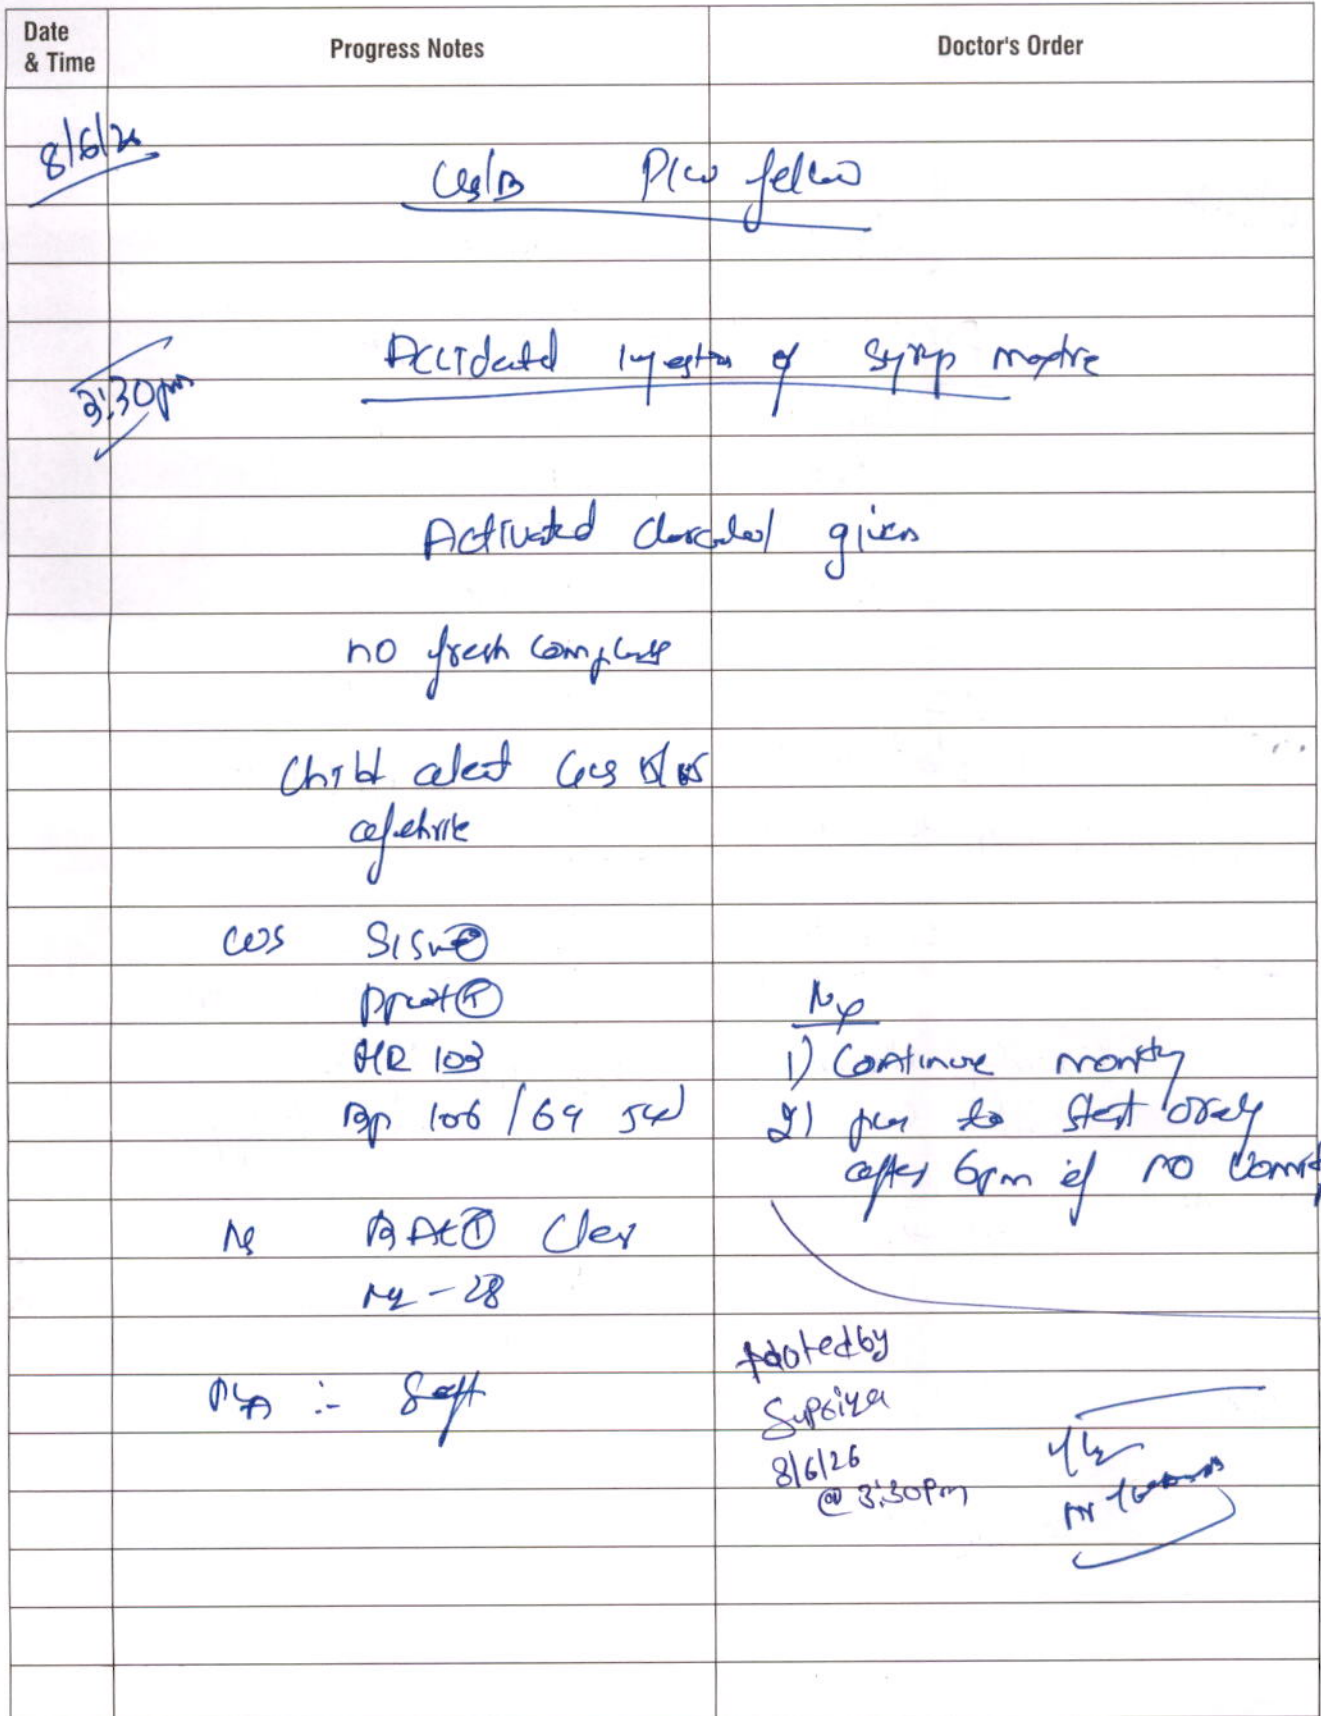 Date & Time
Progress Notes
Doctor's Order
8/6/26
C/S/B PICU fellow
3:30pm
Accidental ingestion of syrup
Activated charcoal given
no fresh complaints
Child alert GCS 15/15
afebrile
CVS S1S2 ⊕
PP
HR 103
BP 106/69
RS BAE ⊕ Clear
RR - 28
P/A :- Soft
1) Continue
2) plan to start orally
after 6pm if no vomit
Noted by
Supriya
8/6/26
@ 3:30pm